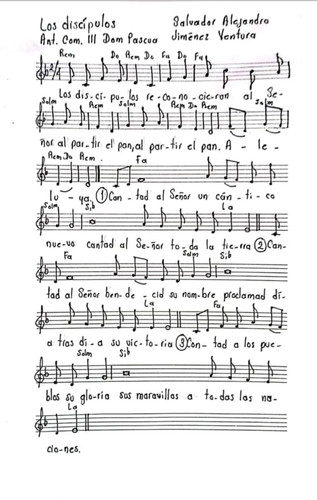 Los discípulos
Salvador Alejandro
Ant. Com. III Dom Pascua
Jiménez Ventura
Rem Do Rem Do Fa Do Fa
2/4
Los dis-cí-pu-los re-co-no-cie-ron al Se-
Solm Rem Solm Rem Do Rem Solm
ñor al par-tir el pan, al par-tir el pan. A-le-
Rem Do Rem Fa
lu-ya. ① Con-tad al Señor un cán-ti-co
Solm Sib La
nue-vo cantad al Se-ñor to-da la tie-rra ② Can-
Fa Solm Sib
tad al Señor ben-de-cid su nom-bre proclamad dí-
La Fa
a tras dí-a su vic-to-ria ③ Con-tad a los pue-
Solm Sib
blos su glo-ria sus maravillas a to-das las na-
La
cio-nes.